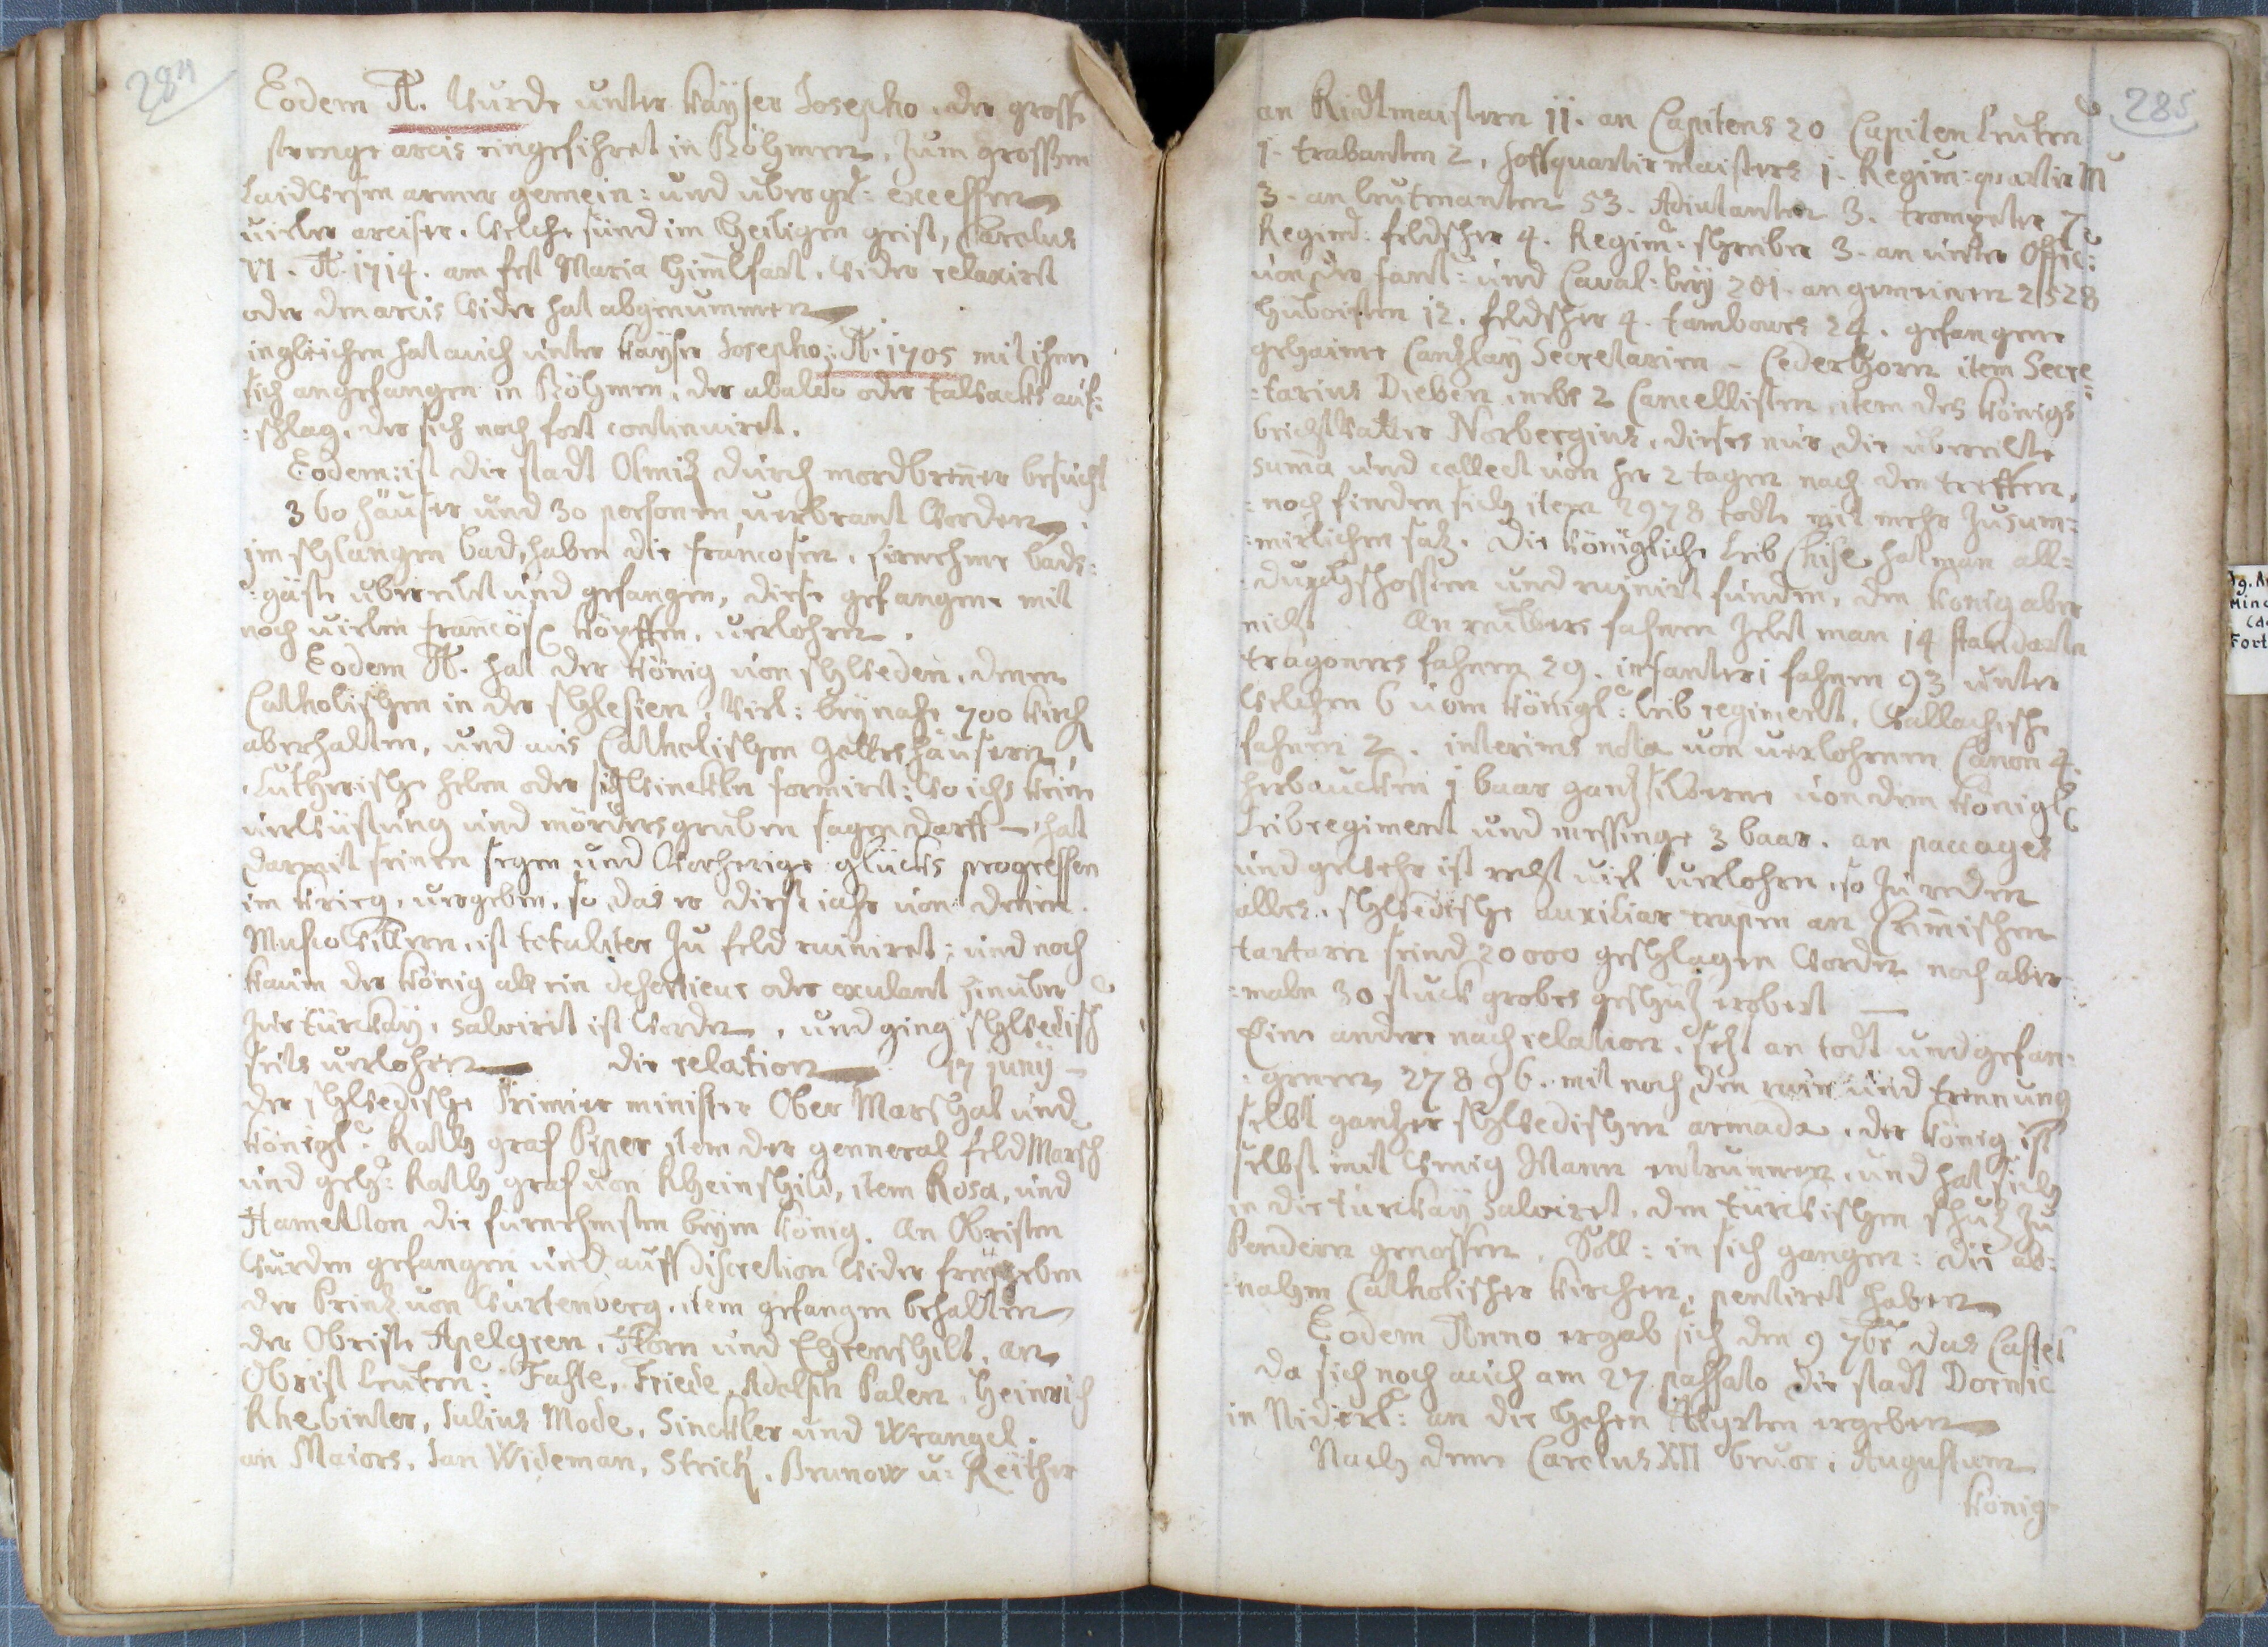 284
Eodem A. wurde unter kaÿser Josepho, der grosse
strenge arcis eingefihret in Böhmen, zum grossen
Laidwesen armer gemein: und uber gr: excessen
vieler arciser. welche sünd im heiligen geist, Carolus
VI. A. 1714. am fest Maria himelfart, wider relaxirt
oder den arcis wider hat abgenummen
ingleichen hat auch unter kaÿser Josepho: A. 1705 mit ihm
sich angefangen in Böhmen, der abaldo oder tabacks auf:
:schlag, der sich noch fort continuiret.
Eodem: ist die stadt Olmitz durch mordbrener besucht
360 häuser und 30 personen, verbrant worden.
im schlangen bad, haben die francosen, firnehme bads:
:gäste ubereilet und gefangen, diese gefangene mit
noch vielen francös köpffen, verlohren.
Eodem A. hat der könig von schweden, denen
Catholischen in der schlesien, viel: beÿ nahe 700 kirch
aberhalten, und aus Catholischen gotteshäusern,
Lutherische oder schlwinckeln formiret: wo ichs keine
verwüstung und mördersgruben sagen darff — hat
darmit seinen segen und vorherige glücks progressen
im krieg, vergeben, so das er diese iahr von denen
Muscowittern, ist totaliter zu feld ruiniret: und noch
kaum der könig als ein oder exulant hinuber
zur türckaÿ, salvirt ist worden, und ging schwedisch
seits verlohren — die relation — 17 junÿ —
der schwedische Primier minister Ober Marschal und
königl: Rath graf Piper item der genneral feld Marsch
und geh: Rath graf von Rheinschild, item Rosa, und
Hamelton die fürnehmsten beÿm könig. An Obristen
wurden gefangen und auff discretion wider freÿgeben
der Printz von Würtenberg, item gefangen behalten
der Obriste Apelgren, Horn und Ehrenschilt, an
Obrist Leuten: Faste, Friede, Adolph Palen, Heinrich
Rhebinter, Julius Mode, Sinckler und Wrangel.
an Maiors, Jan Wideman, Strick, Brunow u: Reither
285
an Ridtmaistern 11. an Capitens 20 Capiten Leuten
1. trabanten 2, hoffquartirmaisters 1. Regim: quartir M
3. an leutmanten 53. Adiutanten 3. trompeter 7.
Regimd: feldscher 4. Regim: schreiber 3. an unter Offic:
von der fant: und Caval: leÿ 201. an gemeinen 2528
huboisten 12. feldscher 4. tambours 24. gefangene
gehaime Cantzlaÿ Secretarien - Cederhorn item Secre:
:tarius Dieben nebs 2 Cancellisten item des königs
beichtvatter Norbergius, dieses nur die ubereilte
summa und collect von her 2 tagen nach den treffen,
:noch finden sich item 2978 todte mit mehr zusum:
:mirlichen satz. Die königliche Leib Chise hat man all:
:durchschossen und ruinirt funden, den könig aber
nicht. An reuters fahnen zehlt man 14 standarten
tragoners fahnen 29. infanteri fahnen 93 unter
welchen 6 vom königl: leib regiment, wallachische
fahnen 2. interims nota von verlohrnen Canon 4.
heerbaucken 1 baar gantz silberne von dem königl
Leibregiment und messinge 3 baar. an paccages
und gewehr ist recht viel verlohren, so zu reden
alles. schwedische auxiliar trupen an Crimischen
tartarn seind 20000 geschlagen worden noch aber:
:maln 30 stuck grobes geschütz erobert —
Eine andere nach relation, setzt an todt und gefan:
:genen 27896. mit noch den ruin und trennung
selbst gantzer schwedischen armada, der könig ist
selbst mit wenig Mann entrunnen, und hat sich
in die türckaÿ salviret, den türckischen schutz zu
Bendern genossen. Soll: in sich gangen: die ab:
:nahm Catholischer kirchen, pentiret haben
Eodem Anno ergab sich den 9 7br das Castel
da sich noch auch am 27 passato die stadt Dornic
in Niderl: an die hohen Allyrten ergeben
Nach deme Carolus XII bevor: Augustum
könig